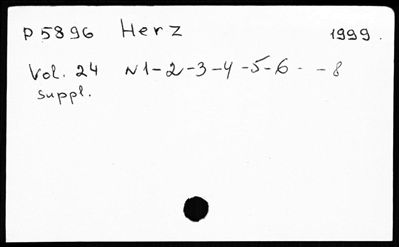 P 5896 Herz 1999.
Vol. 24 N1-2-3-4-5-6 - -8
suppl.